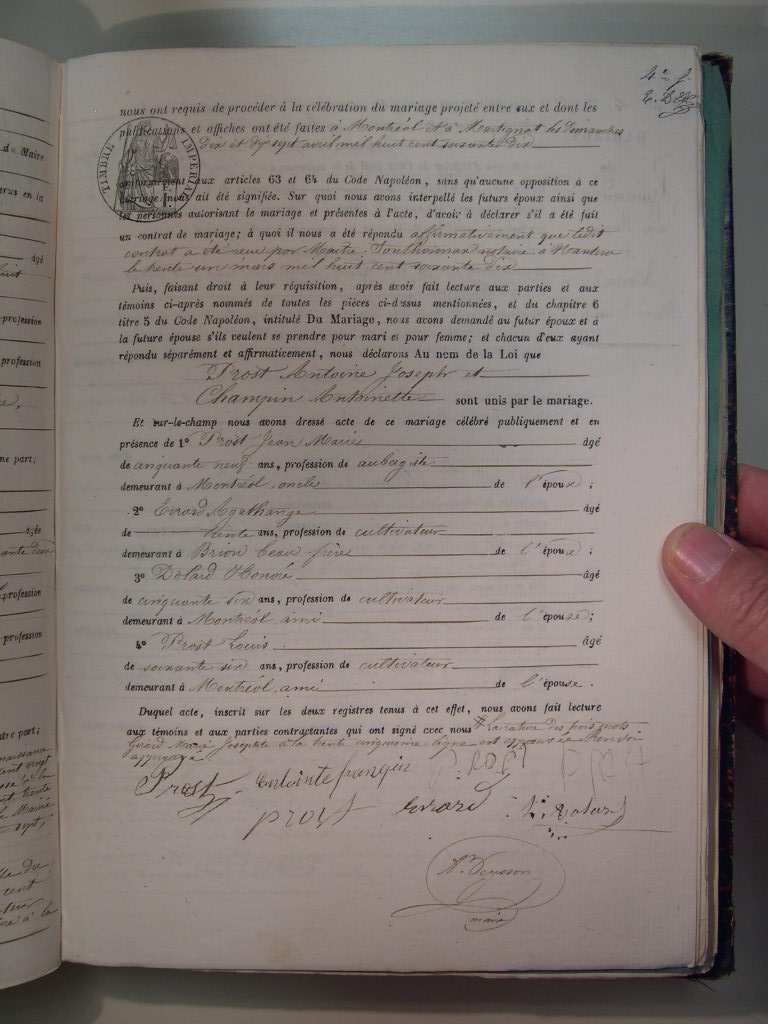 4e f
nous ont requis de procéder à la célébration du mariage projeté entre eux et dont les
publications et affiches ont été faites à Montréal et à Martignat les dimanches
dix et dix sept avril mil huit cent soixante dix
TIMBRE IMPERIAL
conformément aux articles 63 et 64 du Code Napoléon, sans qu'aucune opposition à ce
mariage nous ait été signifiée. Sur quoi nous avons interpellé les futurs époux ainsi que
les personnes autorisant le mariage et présentes à l'acte, d'avoir à déclarer s'il a été fait
un contrat de mariage; à quoi il nous a été répondu affirmativement que ledit
contrat a été reçu par Maitre notaire à Nantua
le trente un mars mil huit cent soixante dix
Puis, faisant droit à leur réquisition, après avoir fait lecture aux parties et aux
témoins ci-après nommés de toutes les pièces ci-dessus mentionnées, et du chapitre 6
titre 5 du Code Napoléon, intitulé Du Mariage, nous avons demandé au futur époux et à
la future épouse s'ils veulent se prendre pour mari et pour femme; et chacun d'eux ayant
répondu séparément et affirmativement, nous déclarons Au nom de la Loi que
Prost Antoine Joseph et
Champin Antoinette sont unis par le mariage.
Et sur-le-champ nous avons dressé acte de ce mariage célébré publiquement et en
présence de 1° Prost Jean Marie âgé
de cinquante neuf ans, profession de aubergiste
demeurant à Montréal oncle de l'épouse;
2° Evrard Agathange âgé
de trente ans, profession de cultivateur
demeurant à Brion beau frère de l'épouse;
3° Dolard Honoré âgé
de cinquante six ans, profession de cultivateur
demeurant à Montréal ami de l'épouse;
4° Prost Louis âgé
de soixante six ans, profession de cultivateur
demeurant à Montréal ami de l'épouse.
Duquel acte, inscrit sur les deux registres tenus à cet effet, nous avons fait lecture
aux témoins et aux parties contractantes qui ont signé avec nous # La rature des trois mots
Marie Josephte à la trente cinquième ligne est approuvée Renvoi
approuvé
Prost antointe
prost Evrard
maire
du Maire
âgé
profession
profession
part;
âgé
profession
profession
part;